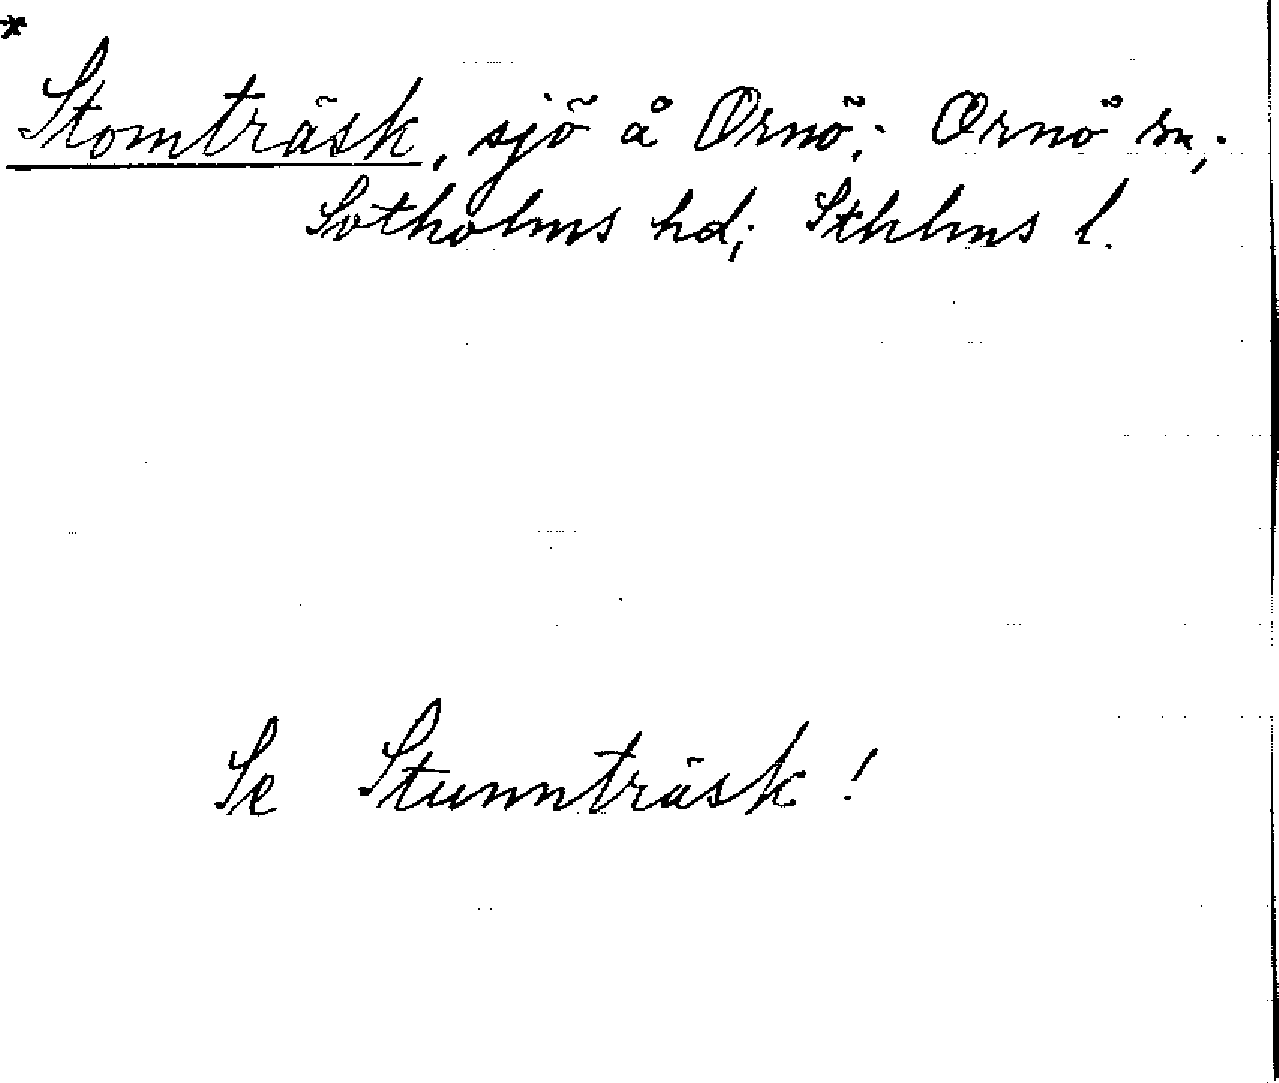 *
Stomträsk, sjö å Ornö; Ornö sn;
Sotholms hd; Sthlms l.
Se Stunnträsk!